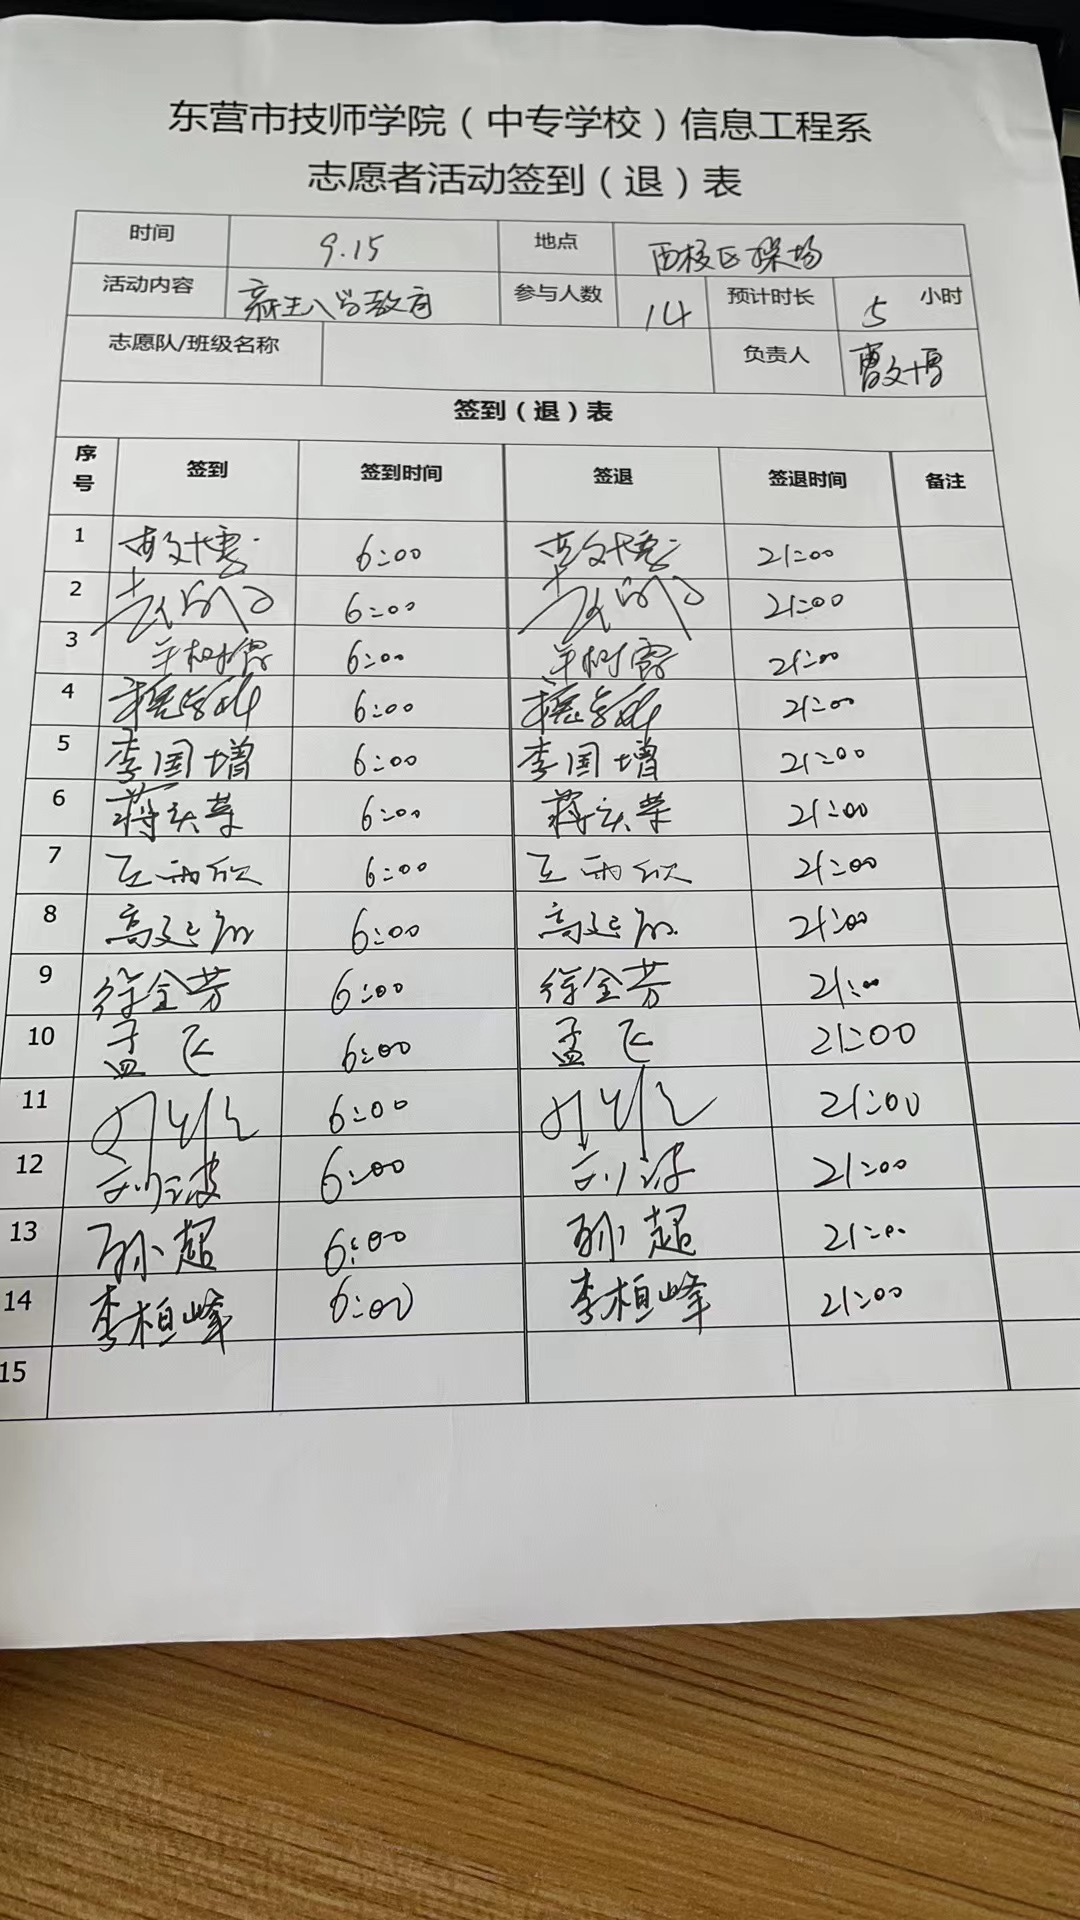 东营市技师学院（中专学校）信息工程系
志愿者活动签到（退）表
时间 9.15 地点 西校区操场
活动内容 新生入学教育 参与人数 14 预计时长 5 小时
志愿队/班级名称 负责人 曹文博
签到（退）表
序号 签到 签到时间 签退 签退时间 备注
1 6:00 21:00
2 6:00 21:00
3 6:00 21:00
4 6:00 21:00
5 李国增 6:00 李国增 21:00
6 6:00 21:00
7 王雨欣 6:00 王雨欣 21:00
8 6:00 21:00
9 徐全芳 6:00 徐全芳 21:00
10 孟飞 6:00 孟飞 21:00
11 6:00 21:00
12 6:00 21:00
13 孙超 6:00 孙超 21:00
14 李桓峰 6:00 李桓峰 21:00
15